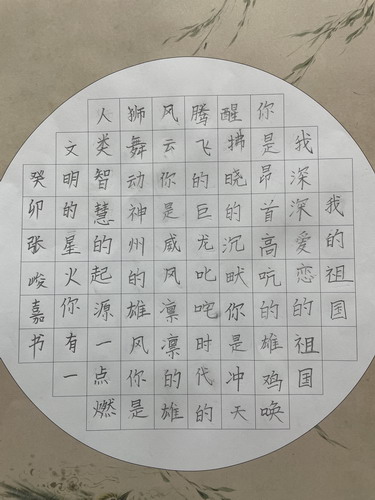 我的祖国
我深深爱恋的祖国
你是昂首高吭的雄鸡唤
醒拂晓的沉默你是冲天
腾飞的巨龙叱咤时代的
风云你是威风凛凛的雄
狮舞动神州的雄风你是
人类智慧的起源一点燃
文明的星火你有一
癸卯张峻嘉书